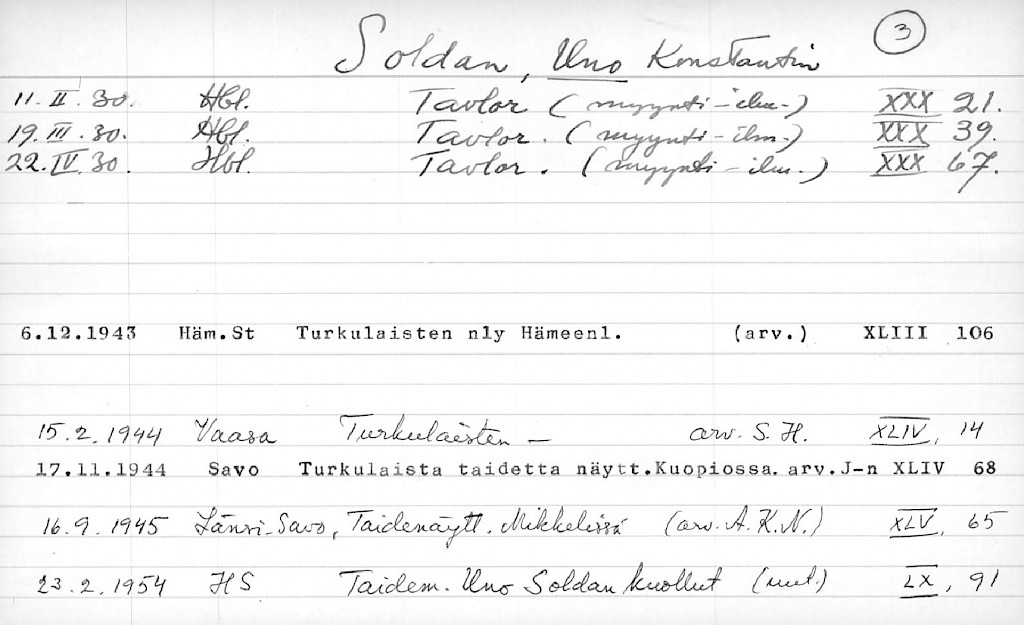 3
Soldan, Uno Konstantin
11. II. 30. Hbl. Tavlor (myynti-ilm.) XXX 21.
19. III. 30. Hbl. Tavlor. (myynti-ilm.) XXX 39.
22. IV. 30. Hbl. Tavlor. (myynti-ilm.) XXX 67.
6.12.1943 Häm.St Turkulaisten nly Hämeenl. (arv.) XLIII 106
15.2.1944 Vaasa Turkulaisten — arv. S.H. XLIV, 14
17.11.1944 Savo Turkulaista taidetta näytt.Kuopiossa. arv.J-n XLIV 68
16.9.1945 Länsi-Savo, Taidenäytt. Mikkelissä (arv. A.K.N.) XLV, 65
23.2.1954 HS Taidem. Uno Soldan kuollut (uut.) LX, 91